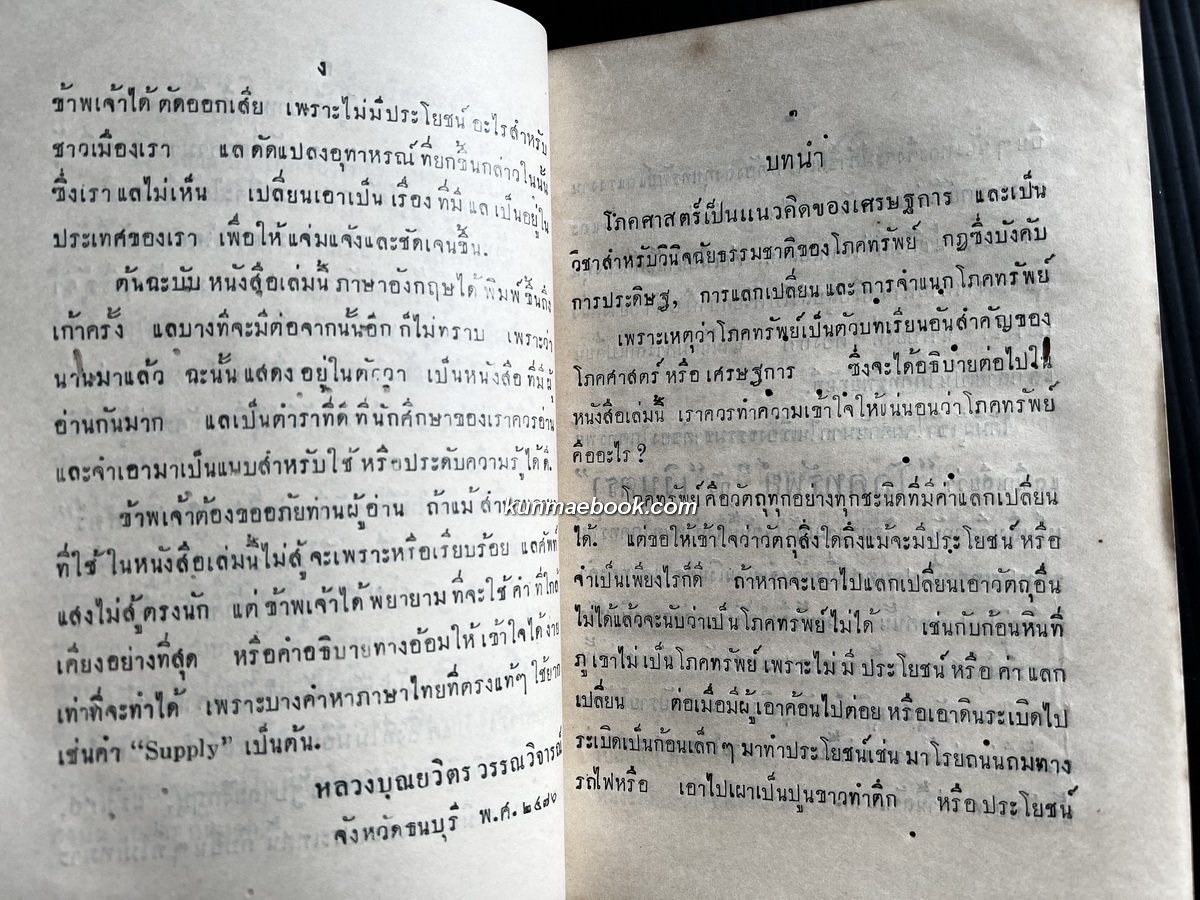 ง
ข้าพเจ้าได้ตัดออกเสีย เพราะไม่มีประโยชน์อะไรสำหรับ
ชาวเมืองเรา แลดัดแปลงอุทาหรณ์ที่ยกขึ้นกล่าวในนั้น
ซึ่งเราแลไม่เห็น เปลี่ยนเอาเป็นเรื่องที่มีแลเป็นอยู่ใน
ประเทศของเรา เพื่อให้แจ่มแจ้งและชัดเจนขึ้น.
ต้นฉะบับหนังสือเล่มนี้ภาษาอังกฤษได้พิมพ์ขึ้นถึง
เก้าครั้ง แลบางทีจะมีต่อจากนั้นอีกก็ไม่ทราบ เพราะว่า
นานมาแล้ว ฉะนั้นแสดงอยู่ในตัวว่า เป็นหนังสือที่มีผู้
อ่านกันมาก แลเป็นตำราที่ดีที่นักศึกษาของเราควรอ่าน
และจำเอามาเป็นแบบสำหรับใช้หรือประดับความรู้ได้ดี.
ข้าพเจ้าต้องขออภัยท่านผู้อ่าน ถ้าแม้สำนวน
ที่ใช้ในหนังสือเล่มนี้ไม่สู้จะเพราะหรือเรียบร้อย แลศัพท์
แสงไม่สู้ตรงนัก แต่ข้าพเจ้าได้พยายามที่จะใช้คำที่ใกล้
เคียงอย่างที่สุด หรือคำอธิบายทางอ้อมให้เข้าใจได้ง่าย
เท่าที่จะทำได้ เพราะบางคำหาภาษาไทยที่ตรงแท้ๆ ใช้ยาก
เช่นคำ “Supply” เป็นต้น.
หลวงบุณยวิตร วรรณวิจารณ์
จังหวัดธนบุรี พ.ศ. ๒๔๗๐
๑
บทนำ
โภคศาสตร์เป็นแนวคิดของเศรษฐการ และเป็น
วิชาสำหรับวินิจฉัยธรรมชาติของโภคทรัพย์ กฎซึ่งบังคับ
การประดิษฐ, การแลกเปลี่ยน และ การจำแนกโภคทรัพย์
เพราะเหตุว่าโภคทรัพย์เป็นตัวบทเรียนอันสำคัญของ
โภคศาสตร์ หรือ เศรษฐการ ซึ่งจะได้อธิบายต่อไปใน
หนังสือเล่มนี้ เราควรทำความเข้าใจให้แน่นอนว่าโภคทรัพย์
คืออะไร ?
โภคทรัพย์ คือวัตถุทุกอย่างทุกชะนิดที่มีค่าแลกเปลี่ยน
ได้. แต่ขอให้เข้าใจว่าวัตถุสิ่งใดถึงแม้จะมีประโยชน์ หรือ
จำเป็นเพียงไรก็ดี ถ้าหากจะเอาไปแลกเปลี่ยนเอาวัตถุอื่น
ไม่ได้แล้วจะนับว่าเป็นโภคทรัพย์ไม่ได้ เช่นกับก้อนหินที่
ภูเขาไม่เป็นโภคทรัพย์ เพราะไม่มีประโยชน์ หรือ ค่าแลก
เปลี่ยน ต่อเมื่อมีผู้เอาค้อนไปต่อย หรือเอาดินระเบิดไป
ระเบิดเป็นก้อนเล็กๆ มาทำประโยชน์เช่น มาโรยถนนถมทาง
รถไฟหรือ เอาไปเผาเป็นปูนขาวทำตึก หรือประโยชน์
kunmaebook.com